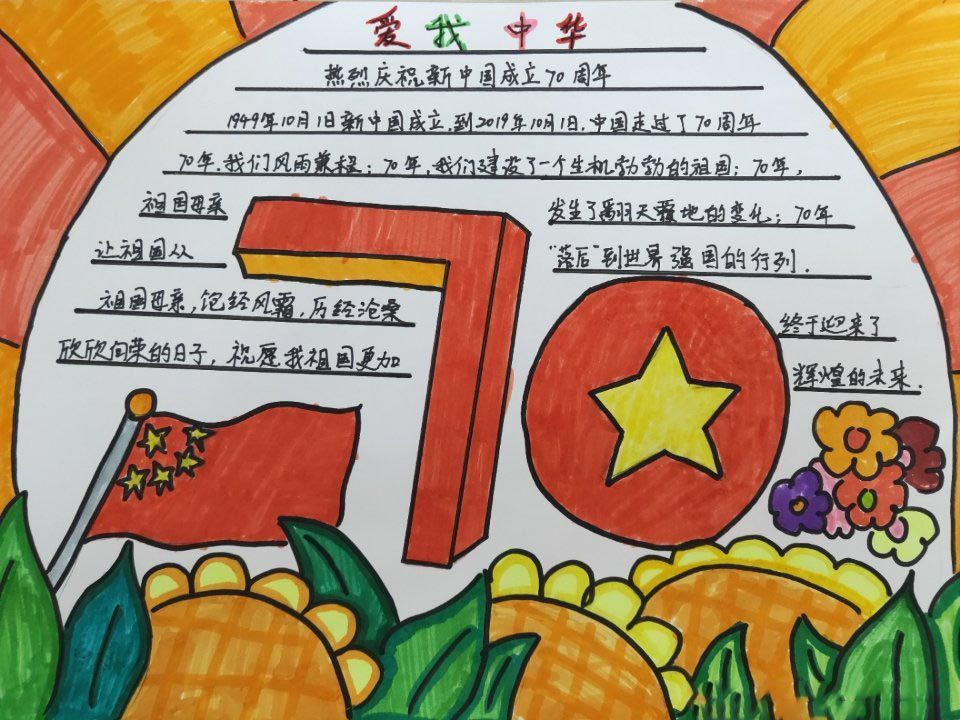 爱我中华
热烈庆祝新中国成立70周年
1949年10月1日新中国成立.到2019年10月1日.中国走过了70周年
70年.我们风雨兼程；70年，我们建设了一个生机勃勃的祖国；70年，
祖国母亲 发生了翻天覆地的变化；70年
让祖国从 “落后”到世界强国的行列．
祖国母亲，饱经风霜，历经沧桑 终于迎来了
欣欣向荣的日子，祝愿我祖国更加 辉煌的未来．
70